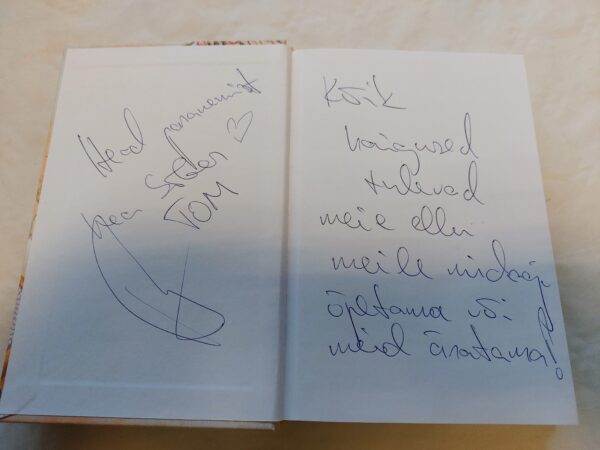 Head paranemist
hea sõber
TOM
Kõik
haigused
tulevad
meie ellu
meile midagi
õpetama või
meid äratama!